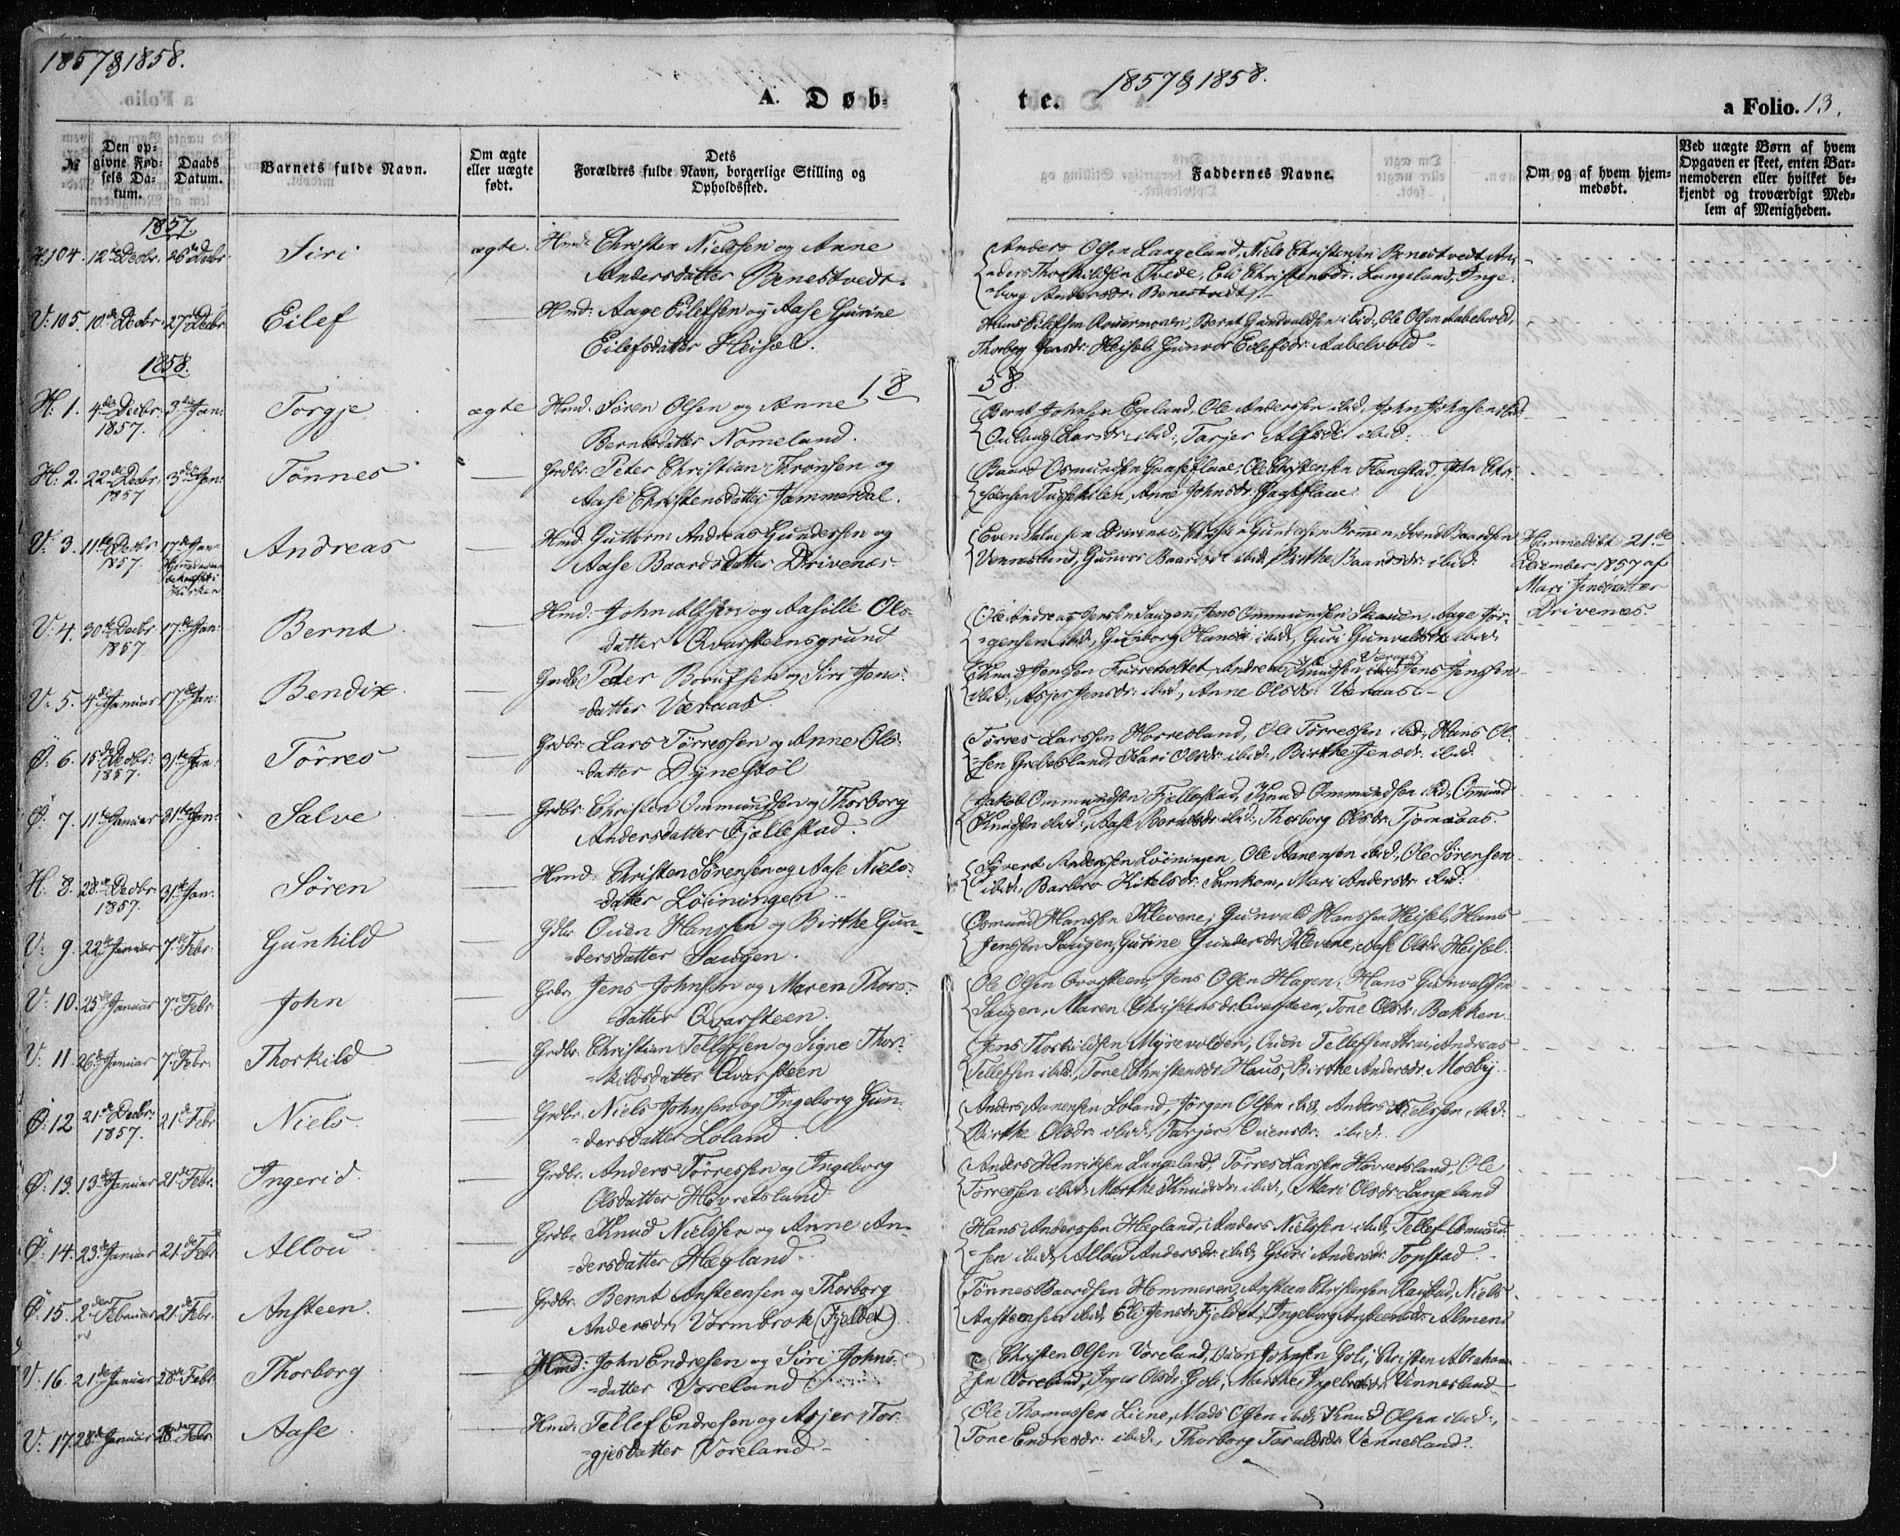 1857 & 1858.
A. Døb-
te.
1857 & 1858.
a Folio. 13.
№
Den op-
givne Fød-
sels Da-
tum.
Daabs
Datum.
Barnets fulde Navn.
Om ægte
eller uægte
født.
Dets
Forældres fulde Navn, borgerlige Stilling og
Opholdssted.
Faddernes Navne.
Om og af hvem hjem-
medøbt.
Ved uægte Børn af hvem
Opgaven er skeet, enten Bar-
nemoderen eller hvilket be-
kjendt og troværdigt Med-
lem af Menigheden.
1857.
H. 104. 12te Decbr. 26de Decbr. Siri ægte. Hmd: Christen Nielssen og Anne
Andersdatter Benestvedt.
Anders Olsen Langeland, Niels Christensen Benestvedt, An-
ders Thorkildsen Qvede, Eli Christensdr. Langeland, Inge-
borg Andersdr. Benestvedt.
V: 105. 10de Decbr. 27de Decbr. Eilef — Hmd: Aage Eilefsen og Aase Gurine
Eilefsdatter Heisel.
Hans Eilefsen, Bernt Gundvaldsen ibid, Ole Olsen Aabelvold,
Thorbor Jensdr. Heisel, Gunvor Eilefsdr. Aabelvold
1858.
18 58.
H: 1. 4de Decbr. 1857. 3die Jan: Torgje ægte Hmd. Søren Olsen og Anne
Berntsdatter Nomeland.
Bernt Johnsen Egeland, Ole Anderssen ibid, John Johnsen ibid,
Larsdr. ibid:, Tarjer Alfsdr. ibid:
H: 2. 22de Decbr. 1857 3die Jan: Tønnes — Grdbr: Peter Christian Thronsen og
Aase Christensdatter Jammerdal.
Baard Osmundsen Gaaseflaae, Ole Christensen Flanestad, John
Anne Johnsdr. Gaaseflaae
V: 3. 11te Decbr. 1857. 17de Jan: Andreas — Hmd Guttorm Andreas Gundersen og
Aase Baardsdatter Drivenes
Even Salvesen Drivenes, Gundersen, Svend Baardsen
Vennesland, Gunvor Baardsdr. ibid, Birthe Baardsdr. ibid:
Hjemmedøbt 21de
December 1857 af
Mari Jensdatter
Drivenes.
V: 4. 30te Decbr. 1857 17de Jan: Bernt — Hmd: John Alfsen og Aasille Ols-
datter Qvarsteensgrund
Ole Andreas Jensen Saugen, Jens Ommundsen, Aage Jør-
gensen ibid, Gunborg Hansdr. ibid, Guri Gunvaldsdr. ibid.
V: 5. 4de Januar 17de Jan: Bendix — Grdbr. Peter Brynilfsen og Siri Jens-
datter Væraas.
Knud Jensen, Andreas Knudsen Væraas, Jens Jensen
ibid, Asjer Jensdr. ibid, Anne Olsdr. Væraas.
Ø. 6. 15de Decbr. 1857. 31te Jan: Tørres — Grdbr: Lars Tørressen og Anne Ols-
datter Dynestøl
Tørres Larssen Horresland, Ole Tørressen ibid, Hans Ol-
sen Grevesland, Kari Olsdr. ibid, Birthe Jensdr. ibid.
Ø. 7. 11te Januar 31te Jan: Salve — Grdbr: Christen Ommundsen og Thorborg
Andersdatter Fjellestad.
Jakob Ommundsen Fjellestad, Knud Ommundsen ibid, Omund
Knudsen ibid:, Aase Berntsdr. ibid:, Thorborg Olsdr. Tjomsaas.
H: 8. 28de Decbr. 1857. 31te Jan: Søren — Hmd: Christen Sørensen og Aase Niels-
datter Løiningen
Syvert Andersen Løiningen, Ole Aanensen ibid, Ole Sørensen
ibid, Barbro Kitelsdr. Samkom, Mari Andersdr. ibid:
V: 9. 22de Januar 7de Febr. Gunhild — Gdbr. Ouen Hanssen og Birthe Gun-
dersdatter Saugen.
Osmund Hanssen Klevene, Gunvald Hanssen Heisel, Hans
Jenssen Saugen, Gurine Gundersdr. Klevene, Aase Olsdr. Heisel.
V: 10. 25de Januar 7de Febr. John — Grdbr. Jens Johnsen og Maren Thors-
datter Qvarsteen.
Ole Olsen Qvarsteen, Jens Olsen Hagen, Hans Gunvaldsen
Saugen, Maren Christensdr. Qvarsteen, Tone Olsdr. Bakken.
V: 11. 26de Januar 7de Febr. Thorkild — Grdbr. Christian Tellefsen og Signe Thor-
kildsdatter Qvarsteen
Jens Thorkildsen Myrevolden, Ouen Tellefsen Strai, Andreas
Tellefsen ibid, Tone Christensdr. Haus, Birthe Andersdr. Mosby.
Ø: 12 21de Decbr: 1857. 21de Febr Niels — Grdbr: Niels Johnsen og Ingeborg Gun-
dersdatter Loland.
Anders Aanensen Loland, Jørgen Olsen ibid, Anders Nielsen ibid:
Birthe Olsdr. ibid, Tarjer Ouensdr. ibid:.
Ø: 13. 13de Januar 21de Febr. Ingerid — Grdbr. Anders Tørressen og Ingeborg
Olsdatter Hovretsland
Anders Henriksen Langeland, Tørres Larsen Hovretsland, Ole
Tørressen ibid, Marthe Knudsdr. ibid, Mari Olsdr. Langeland
Ø. 14. 23de Januar 21de Febr Allou — Grdbr. Knud Nielssen og Anne An-
dersdatter Hægland.
Hans Anderssen Hægland, Anders Nielssen ibid, Tellef Osmund-
sen ibid, Allou Andersdr. ibid, Guri Andersdr. Topstad.
Ø: 15. 2den Februar 21de Febr. Ansteen. — Grdbr: Bernt Ansteensen og Thorborg
Andersdr. Vormbrok (Fjeldet).
Tønnes Baardsen Hommeren, Ansteen Christensen, Niels
Ansteensen ibid, Eli Jensdr. Fjeldet, Ingeborg Ansteensdr. Almene
V. 16. 21de Januar 28de Febr. Thorborg — Hmd: John Endresen og Siri Johns-
datter Voreland
Christen Olsen Voreland, Ouen Johnsen Goli, Christen Abraham-
sen Voreland, Inger Olsdr. Goli, Marthe Ingebretsdr. Vennesland
V: 17. 28de Januar 28de Febr. Aase. — Hmd: Tellef Endresen og Asjer Tor-
gjesdatter Voreland
Ole Thomassen Liene, Mads Olsen ibid, Knud Olsen ibid:,
Tone Endresdr. ibid., Thorborg Taraldsdr. Vennesland.